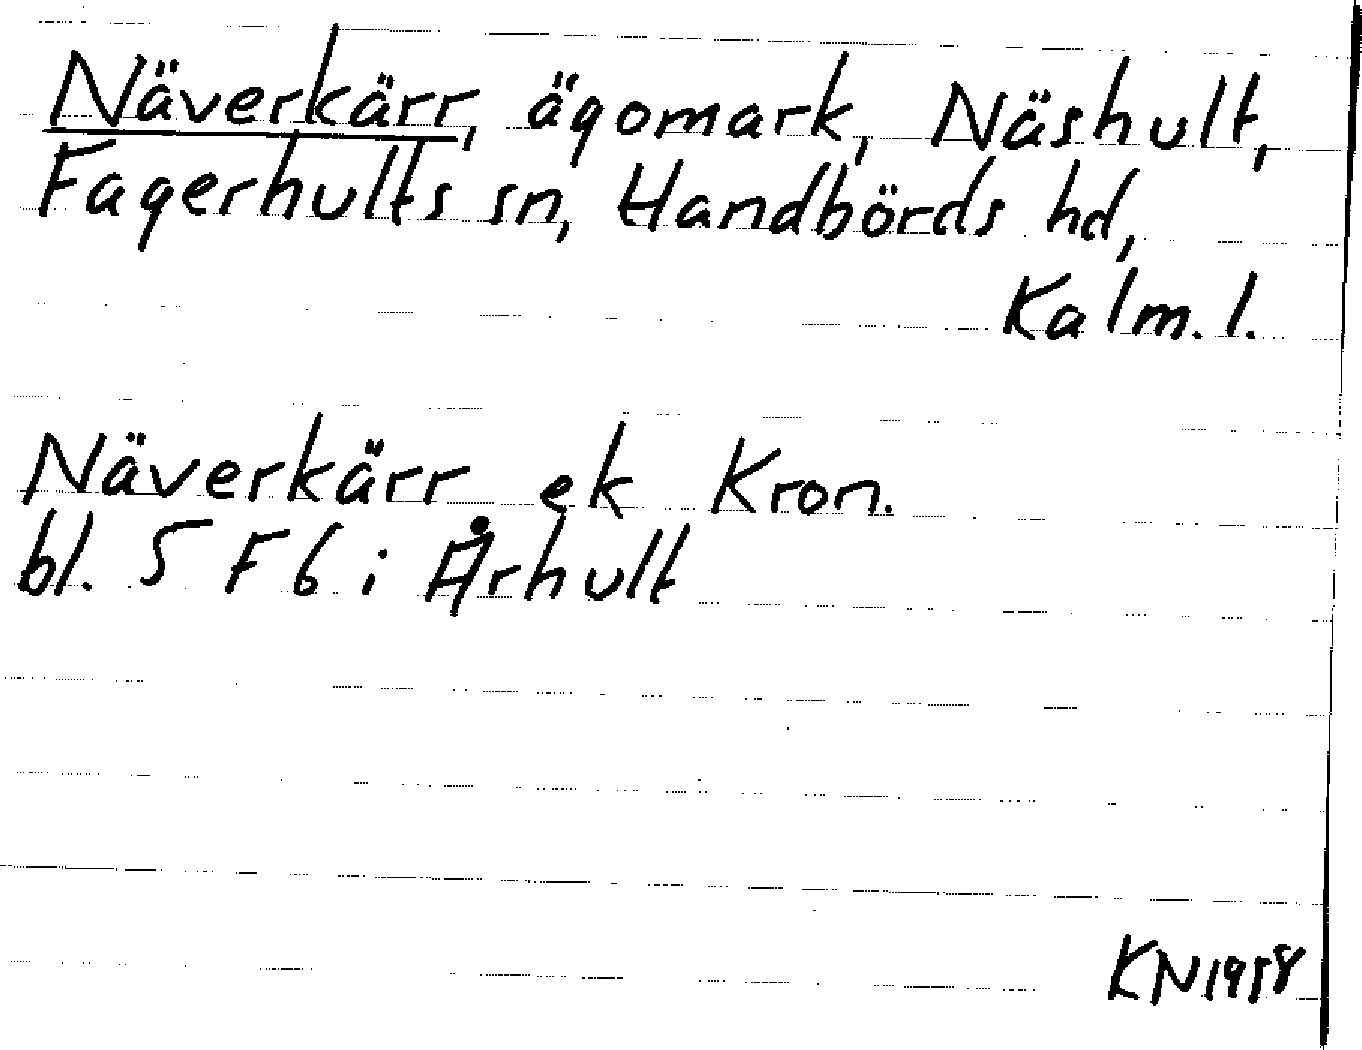 Näverkärr, ägomark, Näshult,
Fagerhults sn, Handbörds hd,
Kalm. l.
Näverkärr ek Kron.
bl. 5 F 6 i Århult
KN 1958